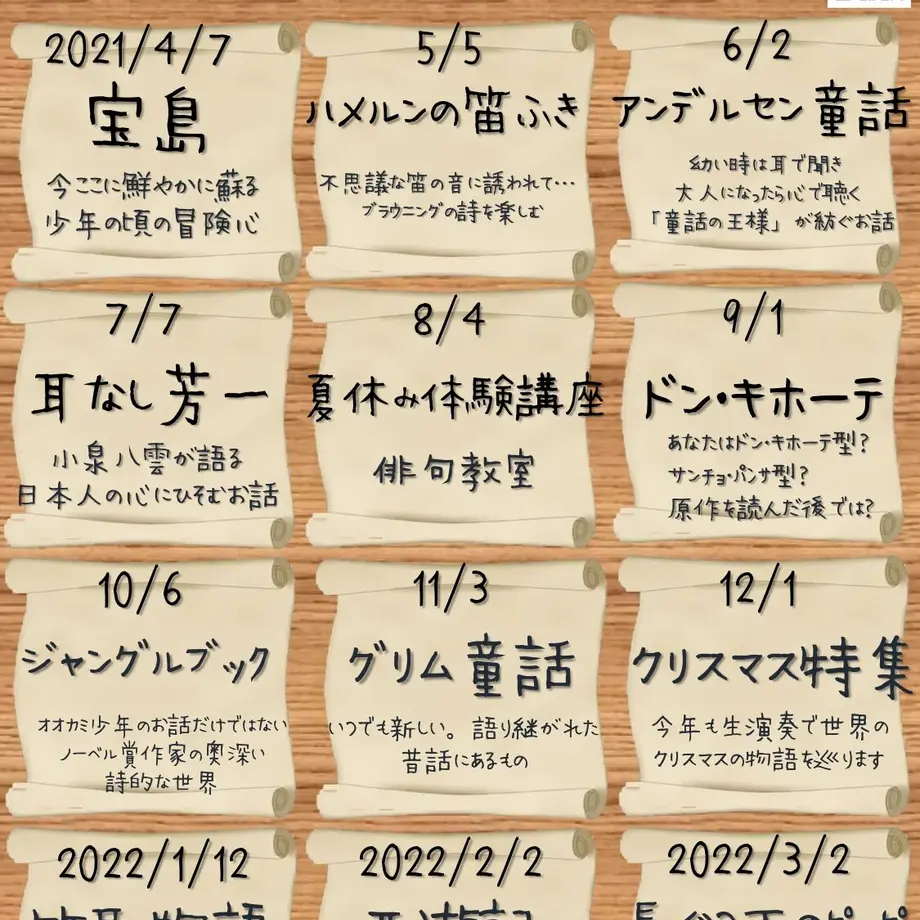 2021/4/7
宝島
今ここに鮮やかに蘇る
少年の頃の冒険心
5/5
ハメルンの笛ふき
不思議な笛の音に誘われて…
ブラウニングの詩を楽しむ
6/2
アンデルセン童話
幼い時は耳で聞き
大人になったら心で聴く
「童話の王様」が紡ぐお話
7/7
耳なし芳一
小泉八雲が語る
日本人の心にひそむお話
8/4
夏休み体験講座
俳句教室
9/1
ドン・キホーテ
あなたはドン・キホーテ型?
サンチョ・パンサ型?
原作を読んだ後では?
10/6
ジャングルブック
オオカミ少年のお話だけではない
ノーベル賞作家の奥深い
詩的な世界
11/3
グリム童話
いつでも新しい。語り継がれた
昔話にあるもの
12/1
クリスマス特集
今年も生演奏で世界の
クリスマスの物語を巡ります
2022/1/12
2022/2/2
2022/3/2